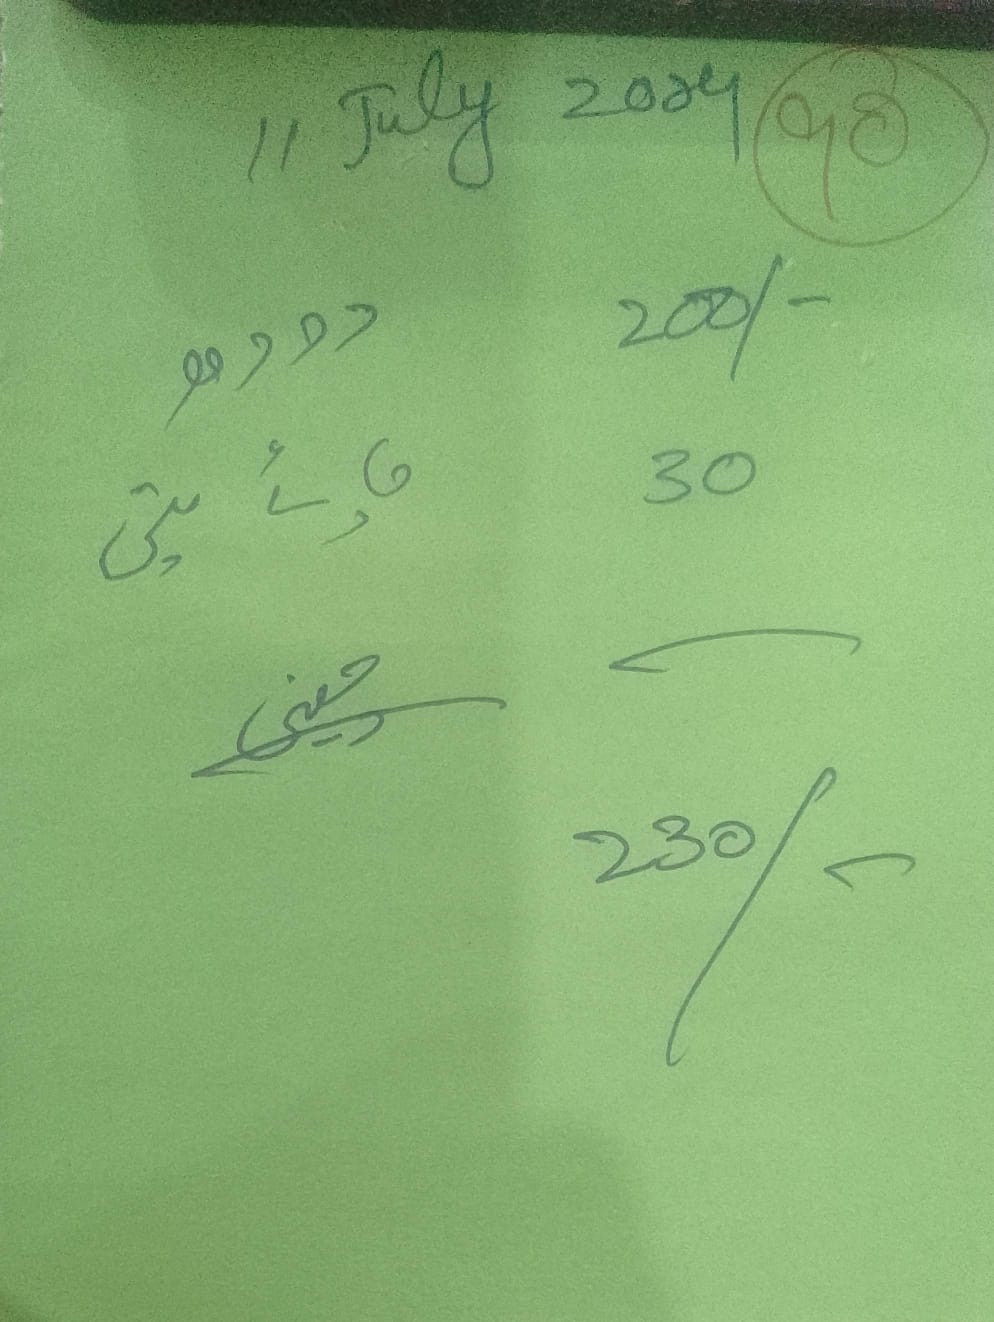 11 July 2024
دودھ 200/-
چائے پتی 30
چینی
230/-